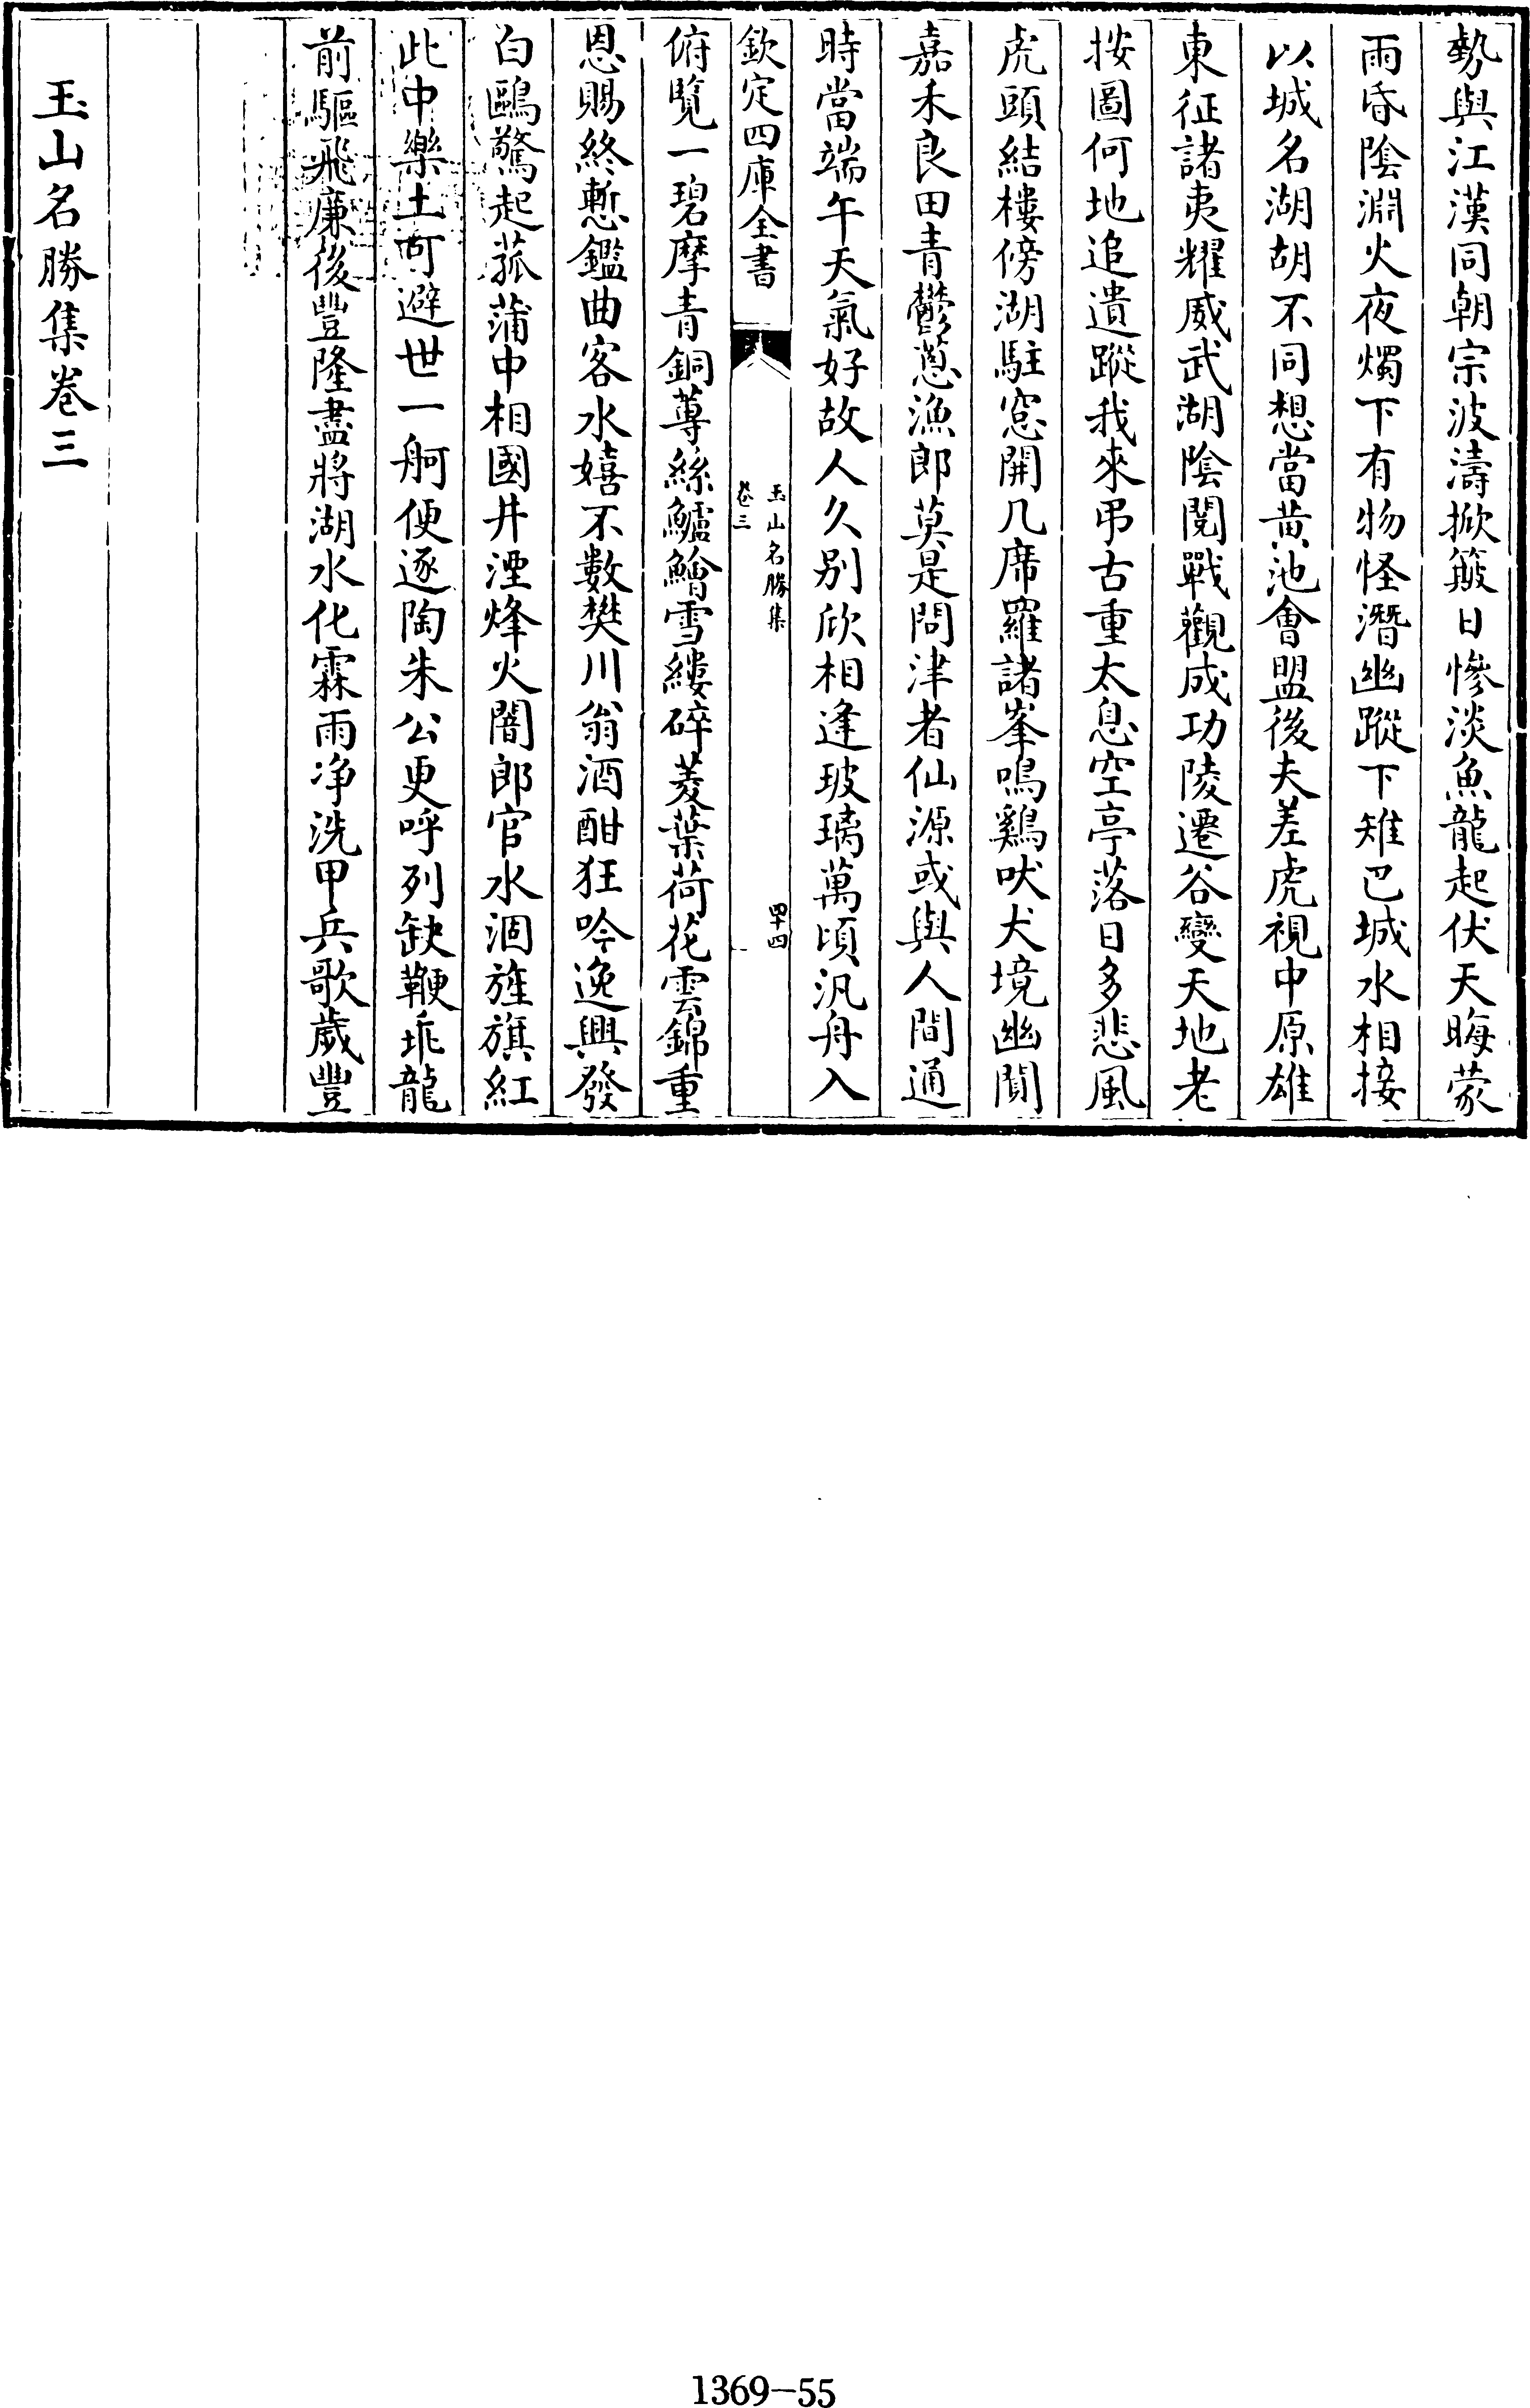 勢與江漢同朝宗波濤掀簸日慘淡魚龍起伏天晦蒙
雨昏陰淵火夜燭下有物怪潛幽蹤下雉巴城水相接
以城名湖胡不同想當黃池會盟後夫差虎視中原雄
東征諸夷耀威武湖陰閱戰觀成功陵遷谷變天地老
按圖何地追遺蹤我來弔古重太息空亭落日多悲風
虎頭結樓傍湖駐窓開几席羅諸峯鳴鷄吠犬境幽閴
嘉禾良田青鬱蔥漁郎莫是問津者仙源或與人間通
時當端午天氣好故人久別欣相逢玻璃萬頃汎舟入
欽定四庫全書
玉山名勝集
卷三
四十四
俯覽一碧摩青銅蓴絲鱸鱠雪縷碎菱葉荷花雲錦重
恩賜終慙鑑曲客水嬉不數樊川翁酒酣狂吟逸興發
白鷗驚起菰蒲中相國井湮烽火闇郎官水涸旌旗紅
此中樂土可避世一舸便逐陶朱公更呼列缺鞭乖龍
前驅飛廉後豐隆盡將湖水化霖雨净洗甲兵歌歲豐
玉山名勝集卷三
1369-55